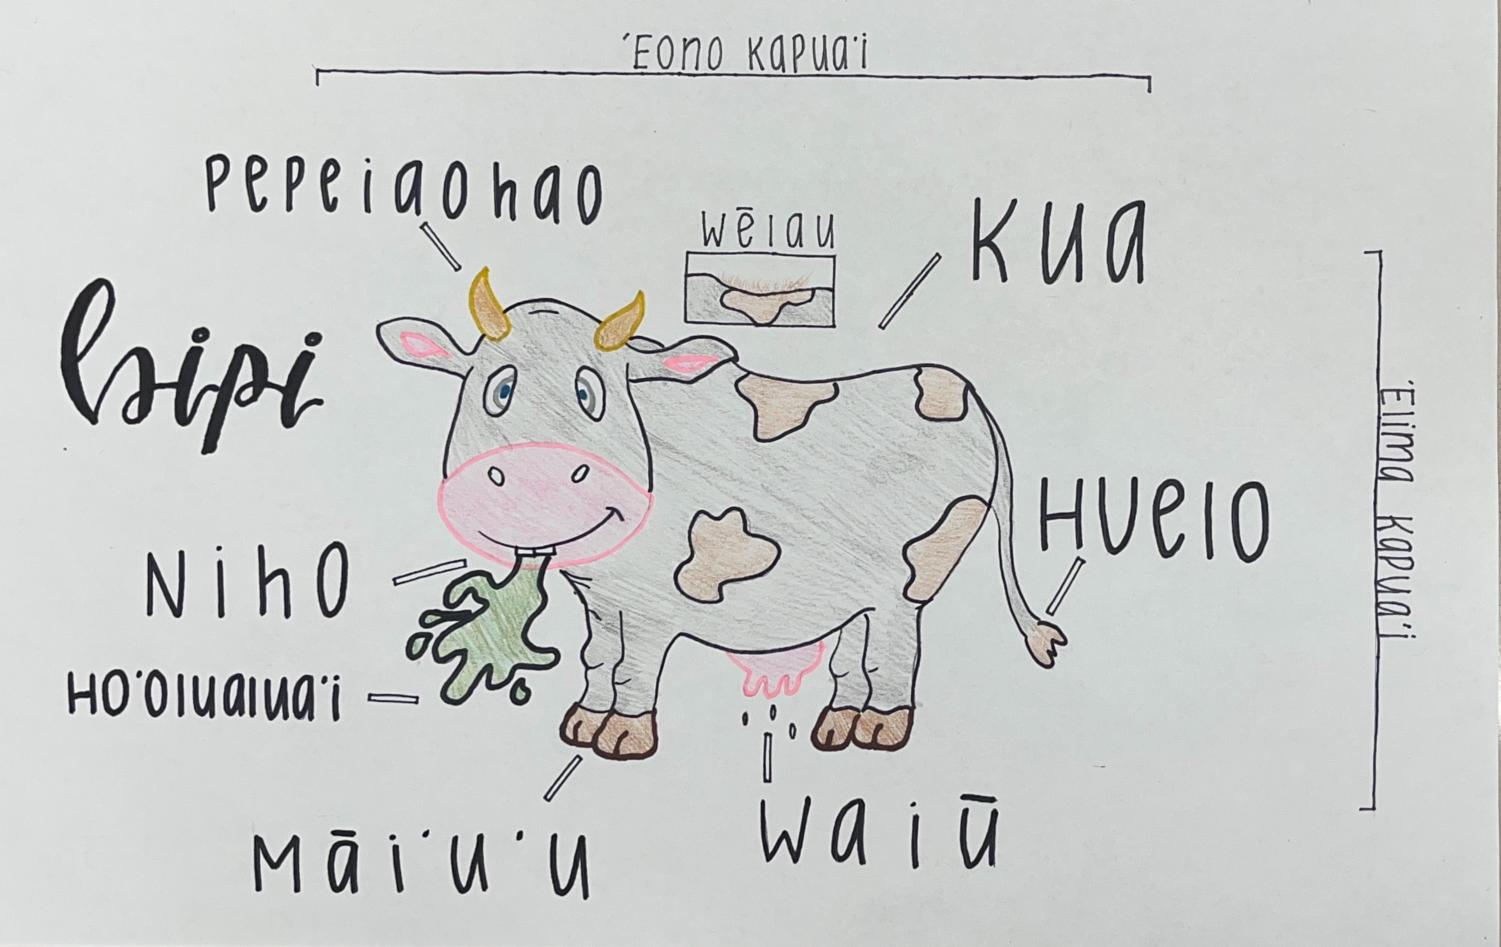 ʻEono Kapuaʻi
Pepeiaohao
Wēlau
Kua
bipi
ʻElima Kapuaʻi
Huelo
Niho
Hoʻolualuaʻi
Māiʻuʻu
Waiū